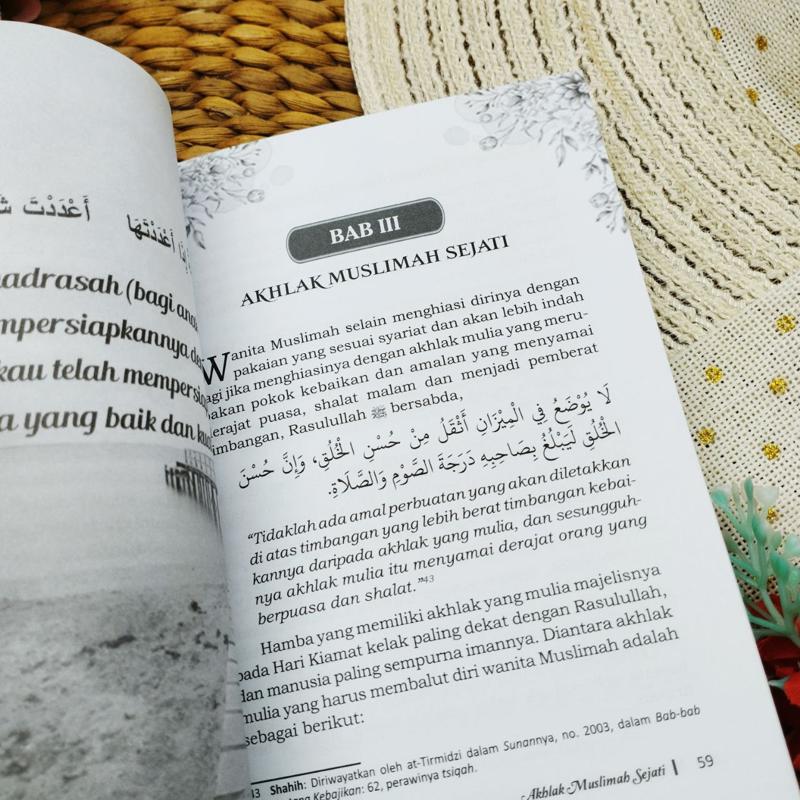 أَعْدَدْتَهَا أَعْدَدْتَ
madrasah (bagi
mempersiapkannya
kau telah
yang baik dan
BAB III
AKHLAK MUSLIMAH SEJATI
Wanita Muslimah selain menghiasi dirinya dengan
pakaian yang sesuai syariat dan akan lebih indah
lagi jika menghiasinya dengan akhlak mulia yang meru-
pakan pokok kebaikan dan amalan yang menyamai
derajat puasa, shalat malam dan menjadi pemberat
timbangan, Rasulullah ﷺ bersabda,
لَا يُوْضَعُ فِي الْمِيْزَانِ أَثْقَلُ مِنْ حُسْنِ الْخُلُقِ، وَإِنَّ حُسْنَ
الْخُلُقِ لَيَبْلُغُ بِصَاحِبِهِ دَرَجَةَ الصَّوْمِ وَالصَّلَاةِ.
“Tidaklah ada amal perbuatan yang akan diletakkan
di atas timbangan yang lebih berat timbangan kebai-
kannya daripada akhlak yang mulia, dan sesungguh-
nya akhlak mulia itu menyamai derajat orang yang
berpuasa dan shalat.”43
Hamba yang memiliki akhlak yang mulia majelisnya
pada Hari Kiamat kelak paling dekat dengan Rasulullah,
dan manusia paling sempurna imannya. Diantara akhlak
mulia yang harus membalut diri wanita Muslimah adalah
sebagai berikut:
43 Shahih: Diriwayatkan oleh at-Tirmidzi dalam Sunannya, no. 2003, dalam Bab-bab
Kebajikan: 62, perawinya tsiqah.
Akhlak Muslimah Sejati | 59